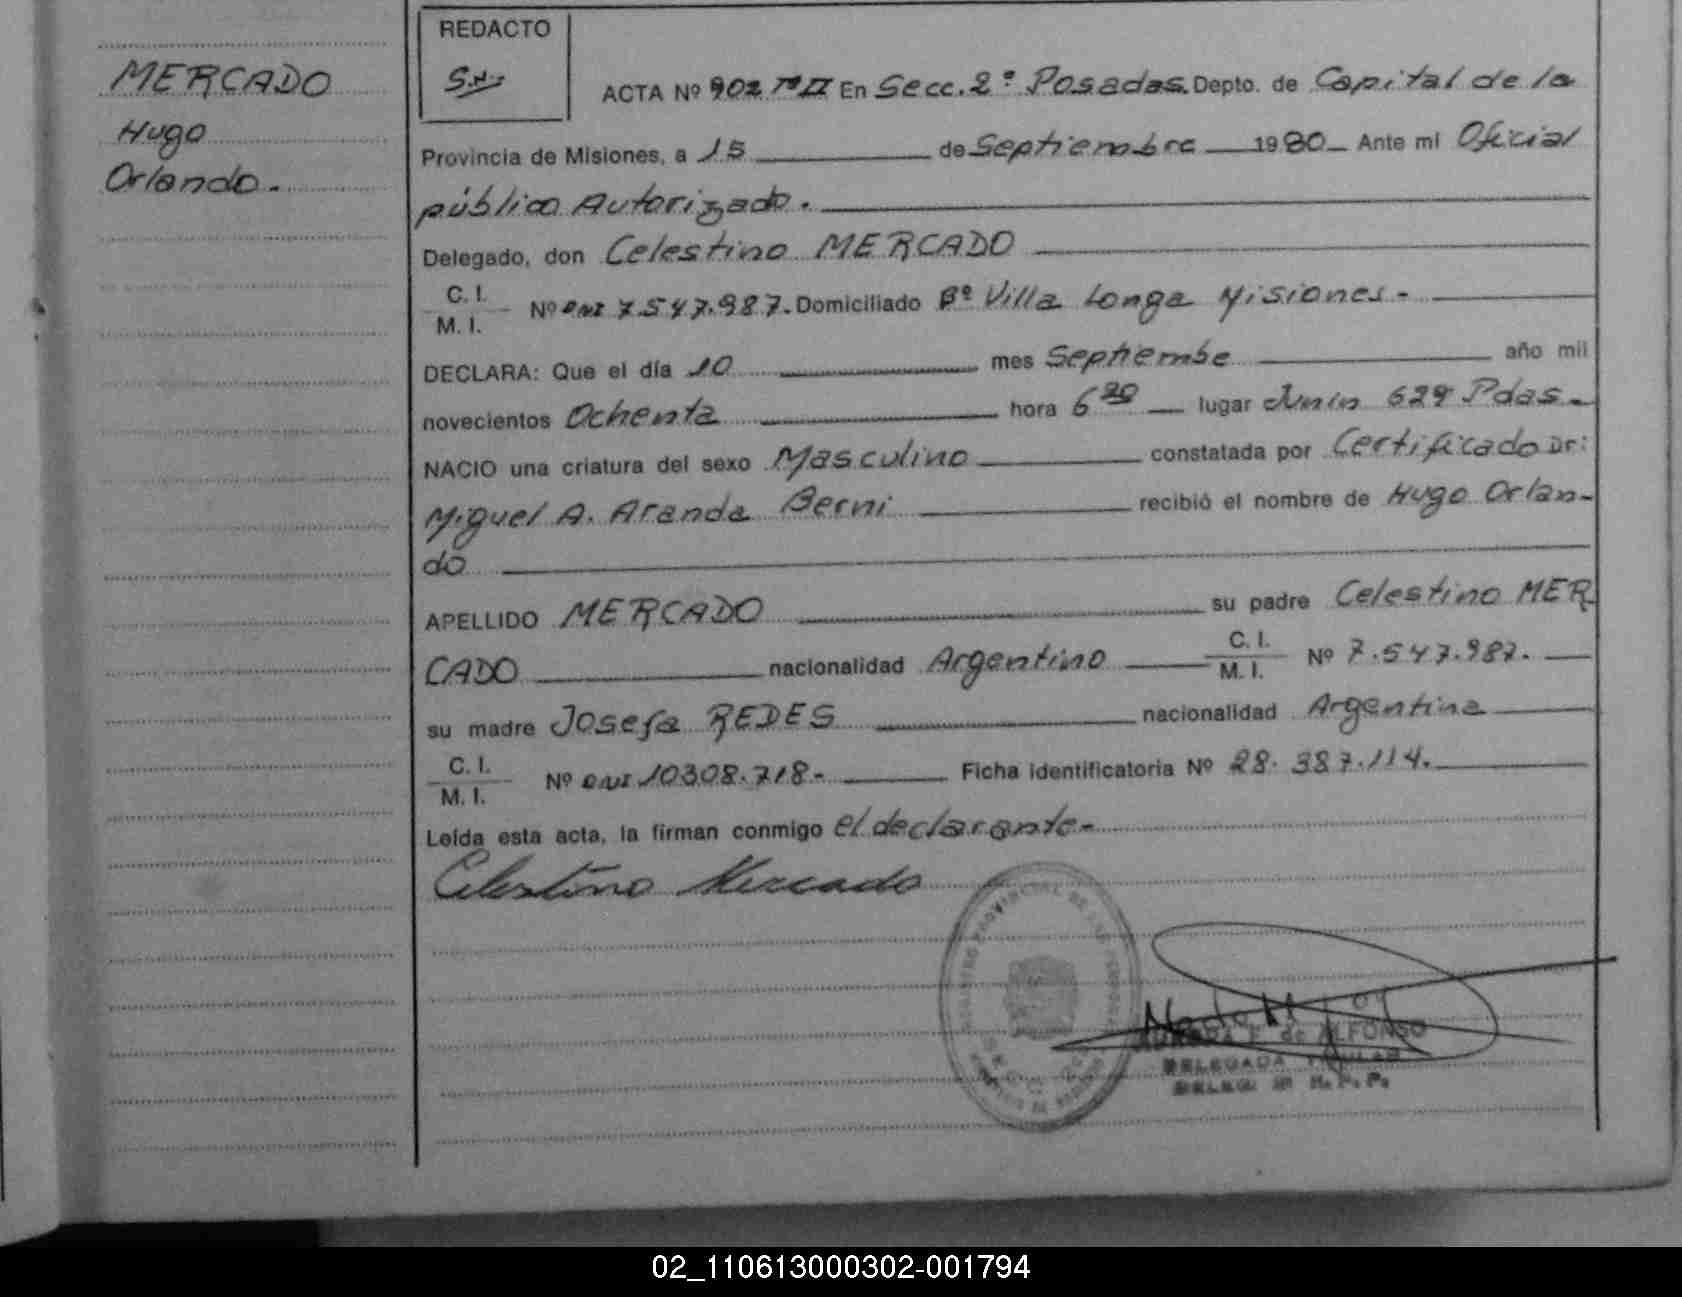 MERCADO
Hugo
Orlando.
REDACTO
ACTA Nº 902 Tº II En Secc. 2º Posadas. Depto. de Capital de la
Provincia de Misiones, a 15 de Septiembre 1980 Ante mi Oficial
público Autorizado.
Delegado, don Celestino MERCADO
C. I.
M. I.
Nº DNI 7.547.987. Domiciliado Bº Villa Longa Misiones -
DECLARA: Que el día 10 mes Septiembe año mil
novecientos Ochenta hora 6 30 lugar Junin 629 Pdas.
NACIO una criatura del sexo Masculino constatada por Certificado Dr:
Miguel A. Aranda Berni recibió el nombre de Hugo Orlan-
do
APELLIDO MERCADO su padre Celestino MER
CADO nacionalidad Argentino C. I.
M. I. Nº 7.547.987.
su madre Josefa REDES nacionalidad Argentina
C. I.
M. I.
Nº DNI 10308.718- Ficha identificatoria Nº 28.387.114.
Leída esta acta, la firman conmigo el declarante-
Celestino Mercado
E. de ALFONSO
DELEGADA TITULAR
02_110613000302-001794